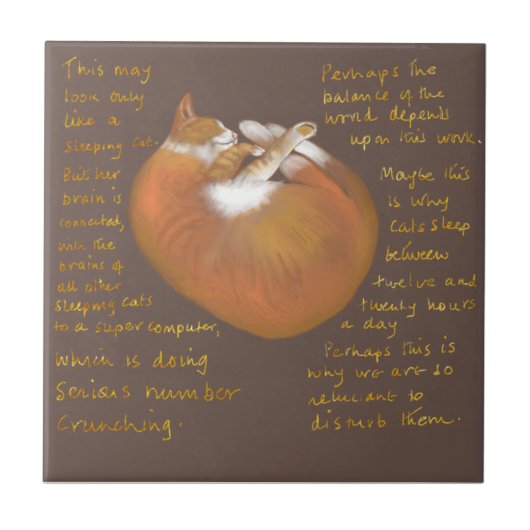 This may
look only
like a
sleeping cat.
But her
brain is
connected,
with the
brains of
all other
sleeping cats
to a super computer,
which is doing
Serious number
Crunching.
Perhaps the
balance of the
world depends
upon this work.
Maybe this
is why
Cats sleep
between
twelve and
twenty hours
a day
Perhaps this is
why we are so
reluctant to
disturb them.